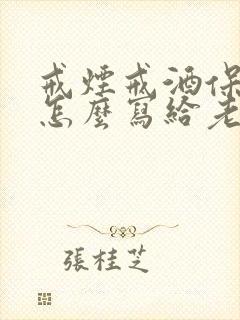 戒煙戒酒保
怎麼寫給老
張桂芝